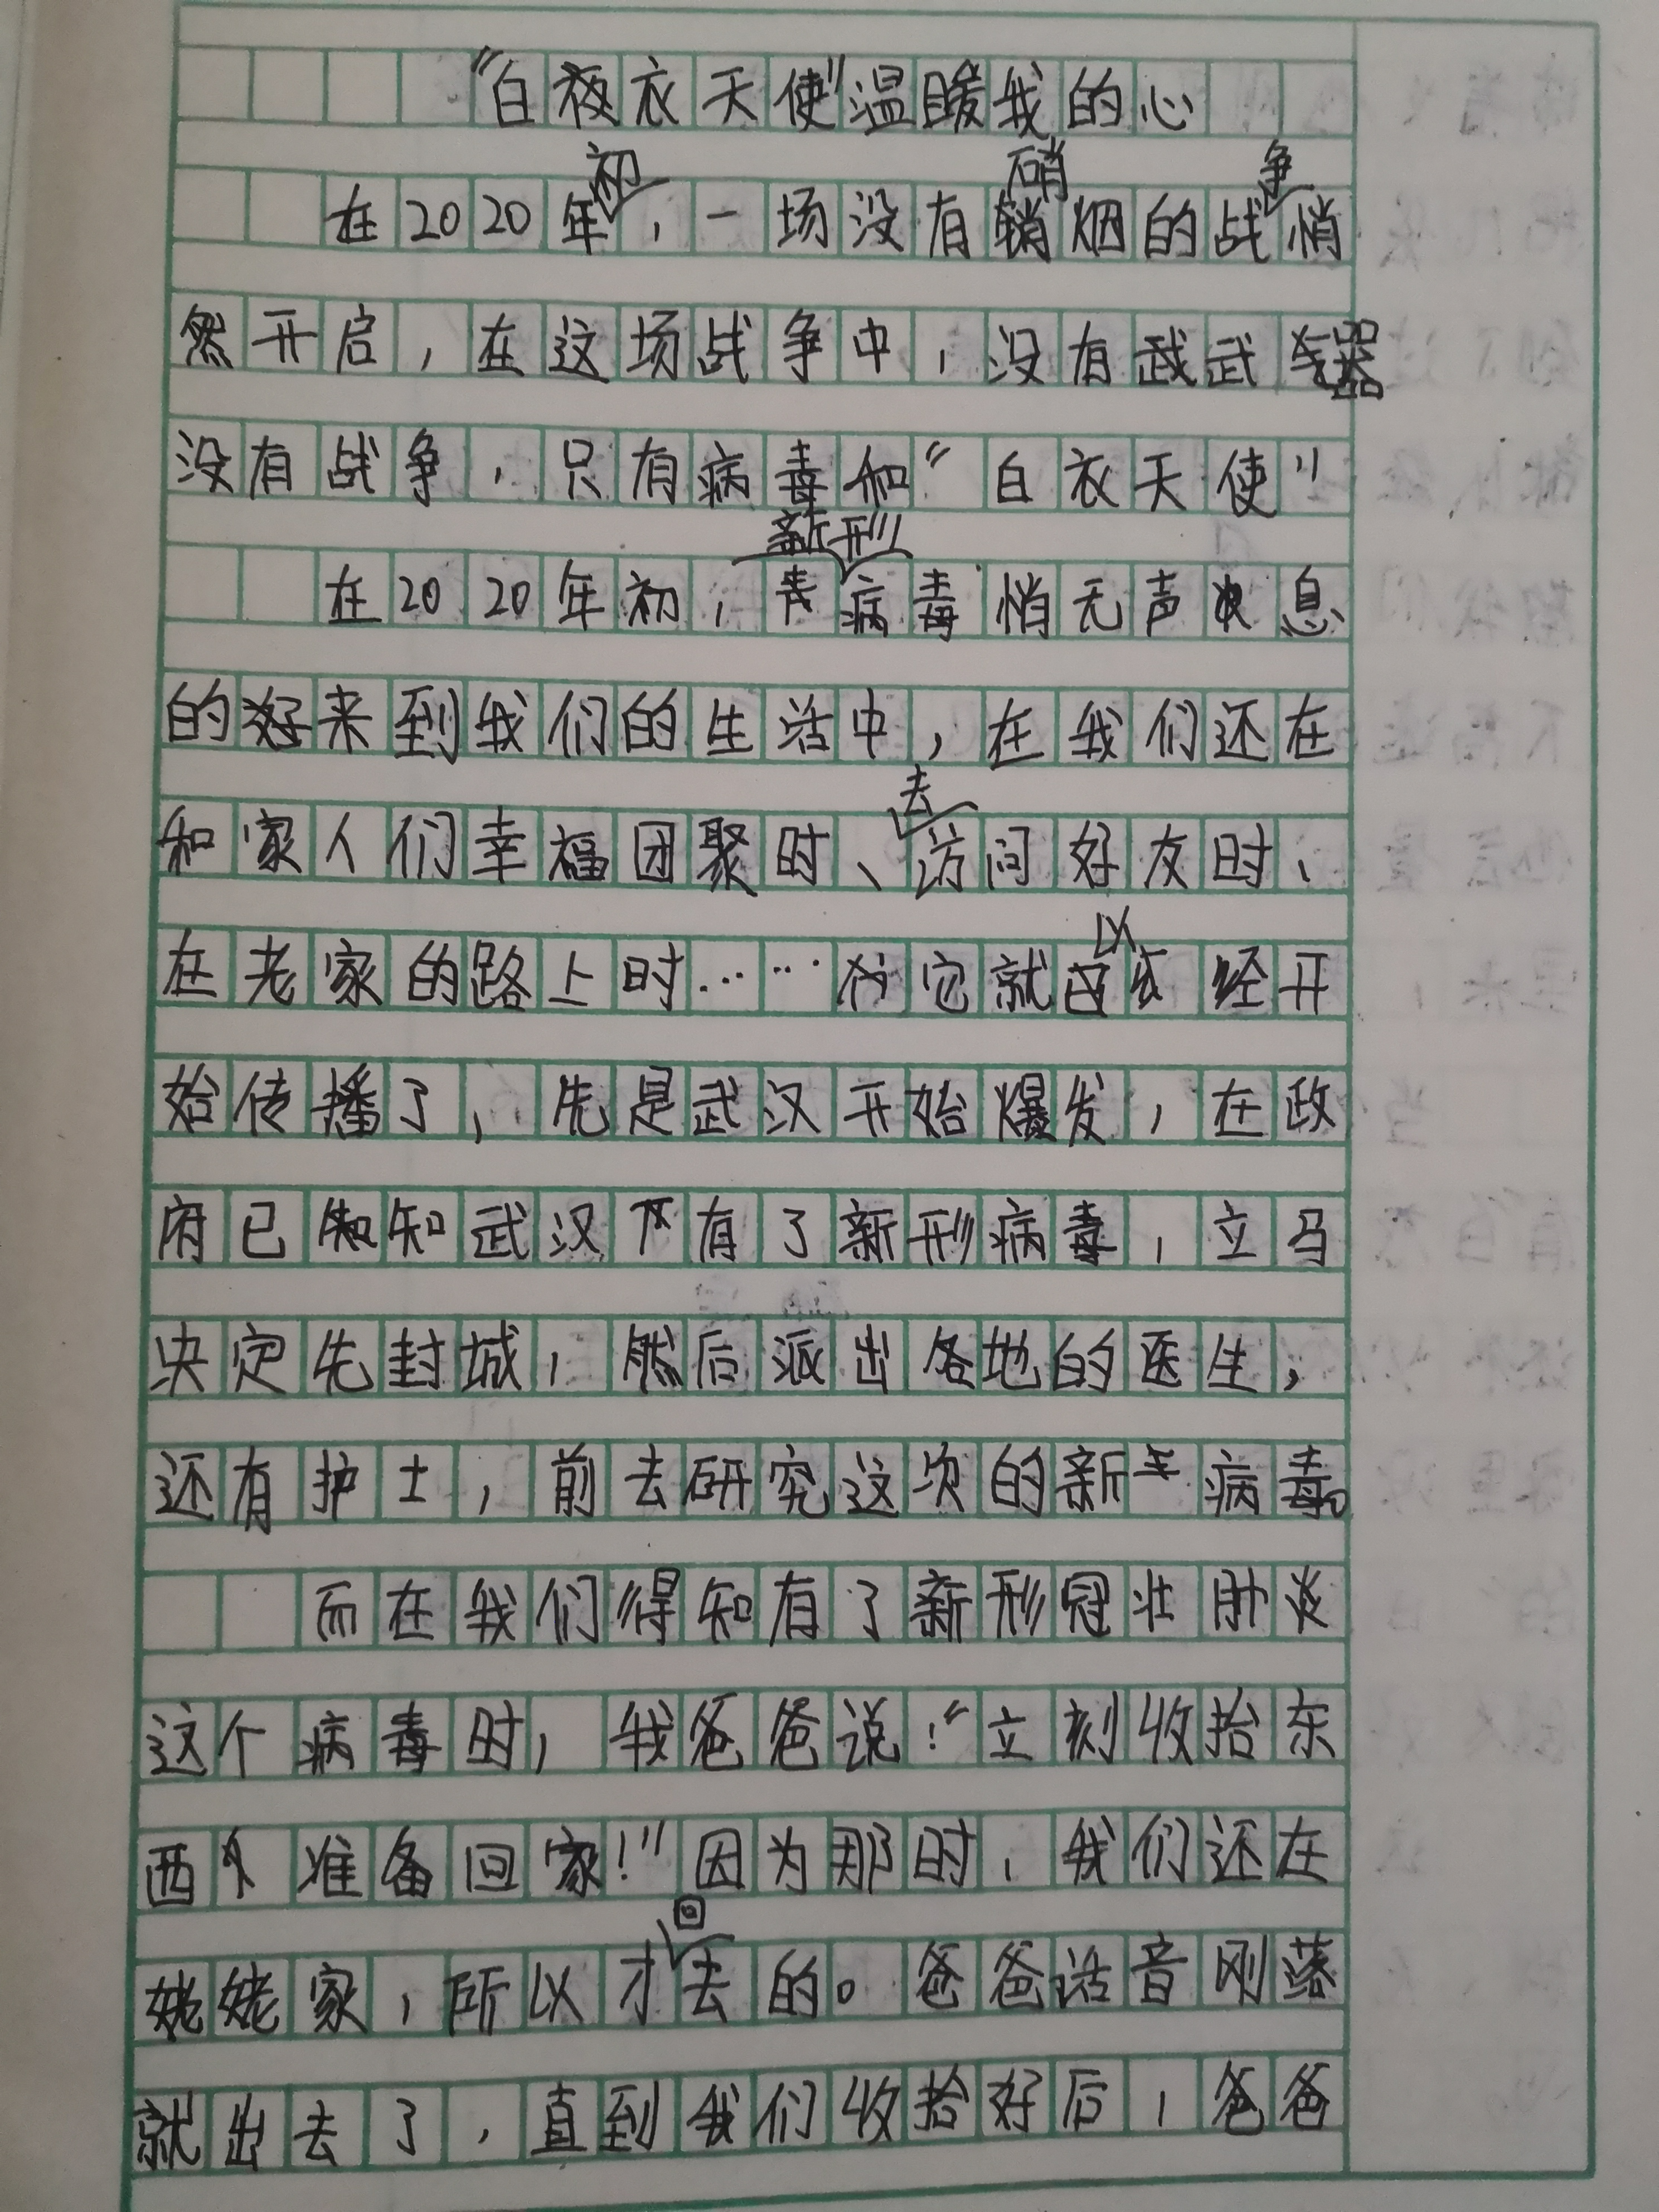 “白衣天使”温暖我的心
在2020年初，一场没有硝烟的战争悄
然开启，在这场战争中，没有武器
没有战争，只有病毒和“白衣天使”
在2020年初，新形病毒悄无声息
的来到我们的生活中，在我们还在
和家人们幸福团聚时、去访问好友时、
在老家的路上时……它就已经开
始传播了，先是武汉开始爆发，在政
府已知武汉有了新形病毒，立马
决定先封城，然后派出各地的医生，
还有护士，前去研究这次的新病毒。
而在我们得知有了新形冠壮肺炎
这个病毒时，我爸爸说：“立刻收拾东
西准备回家！”因为那时，我们还在
姥姥家，所以才回去的。爸爸话音刚落
就出去了，直到我们收拾好后，爸爸